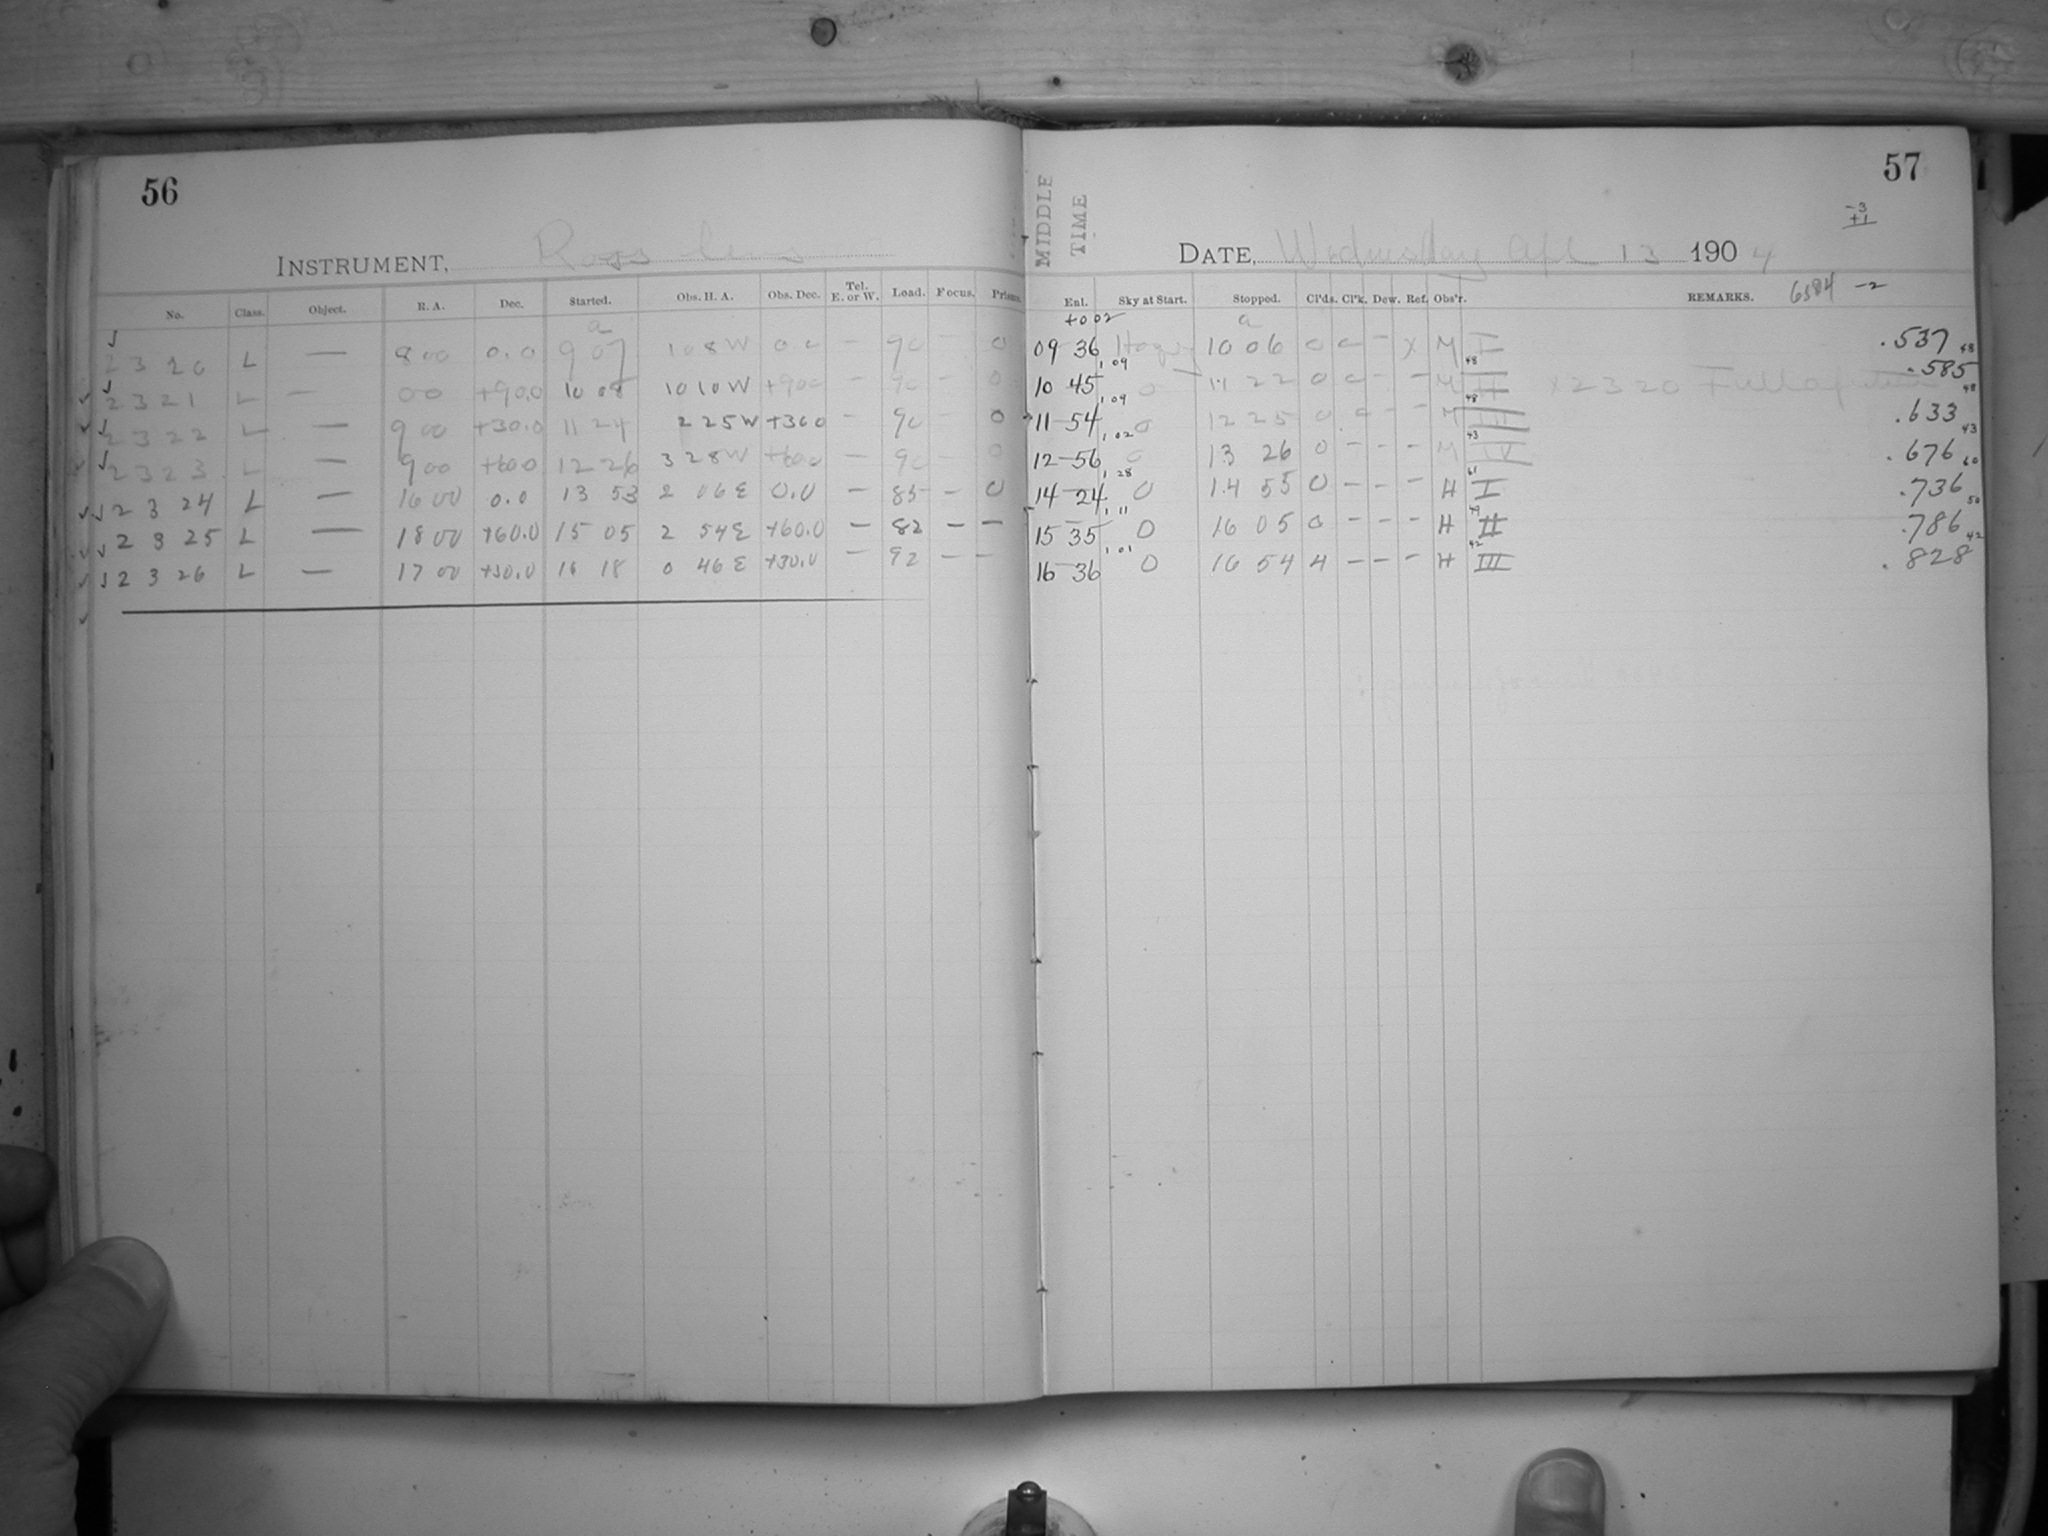 56
INSTRUMENT, Ross lens
No. Class. Object. R. A. Dec. Started. Obs. H. A. Obs. Dec. Tel. E. or W. Load. Focus. Prisms.
a
2320 L — 8 00 0.0 9 07 1 08 W 0 0 — 90 — 0
2321 L — 00 +90.0 10 08 10 10 W +90 0 — 90 — 0
2322 L — 9 00 +30.0 11 24 2 25 W +30 0 — 90 0
2323 L — 9 00 +60 0 12 26 3 28 W +60 0 — 90 — 0
2324 L — 16 00 0.0 13 53 2 06 E 0.0 — 85 — 0
2325 L — 18 00 +60.0 15 05 2 54 E +60.0 — 82 — —
2326 L — 17 00 +30.0 16 18 0 46 E +30.0 — 92 — —
57
MIDDLE TIME
-3
+1
DATE, Wednesday Apl 13 1904
6584 -2
Enl. Sky at Start. Stopped. Cl'ds. Cl'k. Dew. Ref. Obs'r. REMARKS.
+002 a
09 36 10 06 0 0 - X M I .537 48
1 09 48 .585
10 45 0 11 22 0 0 - - M II X2320 Full 48
1 09 48
11 54 0 12 25 0 0 - - M III .633
1 02 43 43
12 56 0 13 26 0 - - - M IV .676 60
1 28 61
14 24 0 14 55 0 - - - H I .736 50
1 11 49
15 35 0 16 05 0 - - - H II .786 42
1 01 42
16 36 0 16 54 4 - - - H III .828